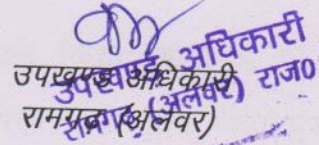 उपखण्ड अधिकारी
रामगढ़ (अलवर) राज0
उपखण्ड अधिकारी
रामगढ़ (अलवर)